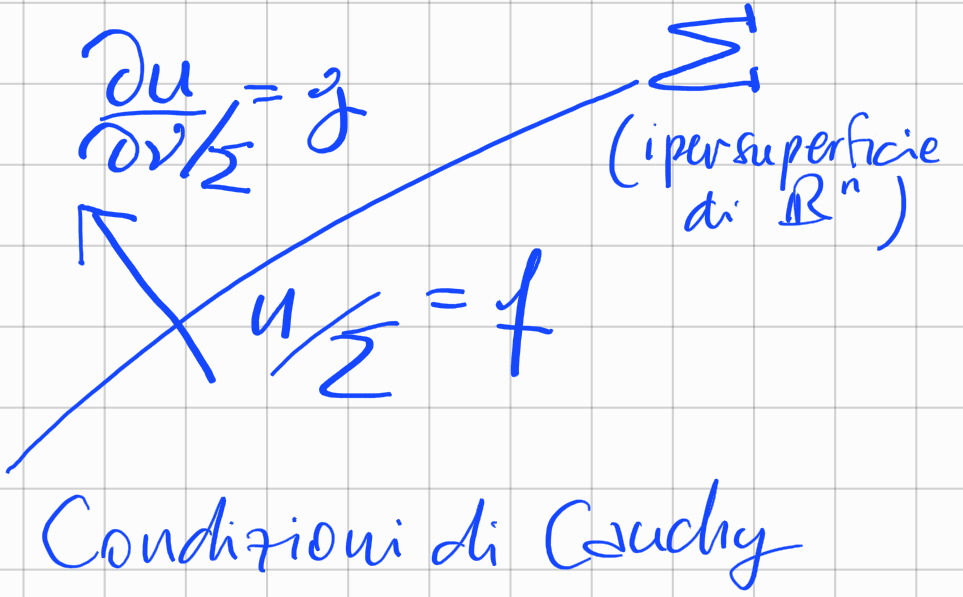 ∂u/∂ν/Σ = g
Σ
(ipersuperficie
di ℝⁿ)
u/Σ = f
Condizioni di Cauchy